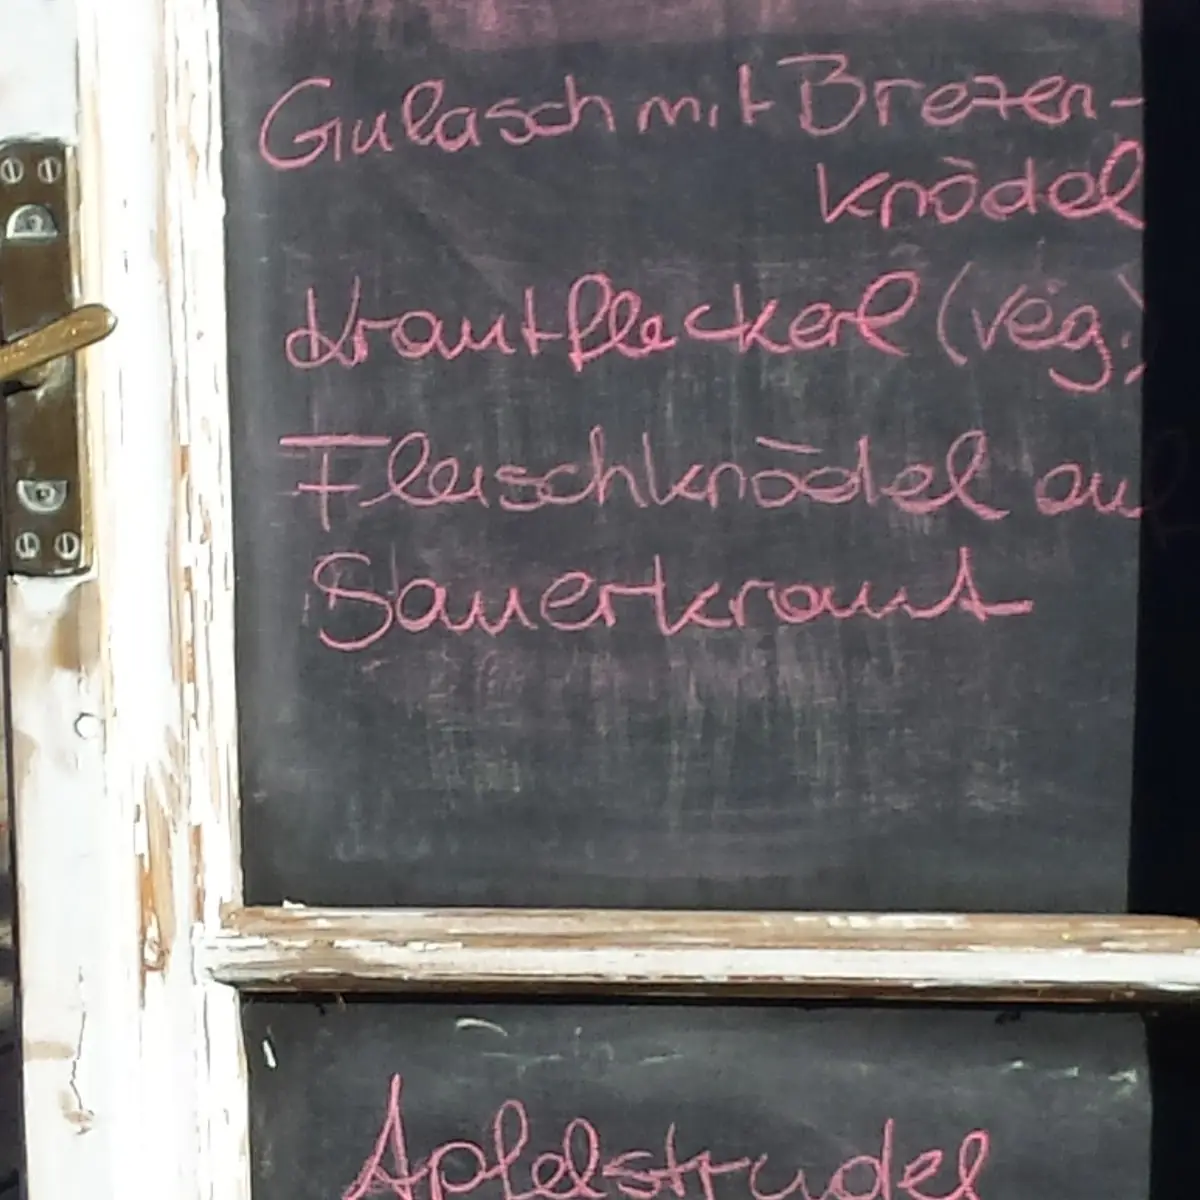 Gulasch mit Brezen-
knödel
Krautfleckerl (veg.)
Fleischknödel auf
Sauerkraut
Apfelstrudel